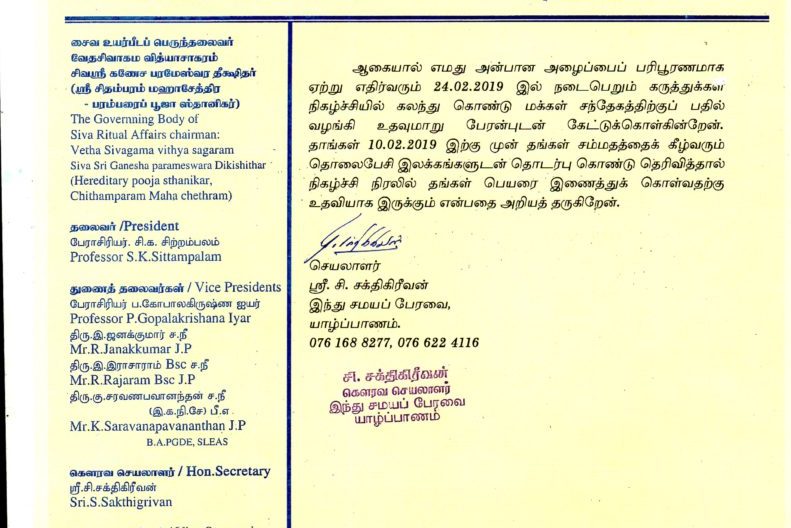 சைவ உயர்பீடப் பெருந்தலைவர்
வேதசிவாகம வித்யாசாகரம்
சிவஸ்ரீ கணேச பரமேஸ்வர தீக்ஷிதர்
(ஸ்ரீ சிதம்பரம் மஹாசேத்திர
- பரம்பரைப் பூஜா ஸ்தானிகர்)
The Governning Body of
Siva Ritual Affairs chairman:
Vetha Sivagama vithya sagaram
Siva Sri Ganesha parameswara Dikishithar
(Hereditary pooja sthanikar,
Chithamparam Maha chethram)
தலைவர் /President
பேராசிரியர். சி.க. சிற்றம்பலம்
Professor S.K.Sittampalam
துணைத் தலைவர்கள் / Vice Presidents
பேராசிரியர் ப.கோபாலகிருஷ்ண ஐயர்
Professor P.Gopalakrishana Iyar
திரு.இ.ஜனக்குமார் ச.நீ
Mr.R.Janakkumar J.P
திரு.இ.இராசாராம் Bsc ச.நீ
Mr.R.Rajaram Bsc J.P
திரு.கு.சரவணபவானந்தன் ச.நீ
(இ.க.நி.சே) பீ.ஏ
Mr.K.Saravanapavananthan J.P
B.A.PGDE, SLEAS
கௌரவ செயலாளர் / Hon.Secretary
ஸ்ரீ.சி.சக்திகிரீவன்
Sri.S.Sakthigrivan
ஆகையால் எமது அன்பான அழைப்பைப் பரிபூரணமாக
ஏற்று எதிர்வரும் 24.02.2019 இல் நடைபெறும் கருத்துக்கள
நிகழ்ச்சியில் கலந்து கொண்டு மக்கள் சந்தேகத்திற்குப் பதில்
வழங்கி உதவுமாறு பேரன்புடன் கேட்டுக்கொள்கின்றேன்.
தாங்கள் 10.02.2019 இற்கு முன் தங்கள் சம்மதத்தைக் கீழ்வரும்
தொலைபேசி இலக்கங்களுடன் தொடர்பு கொண்டு தெரிவித்தால்
நிகழ்ச்சி நிரலில் தங்கள் பெயரை இணைத்துக் கொள்வதற்கு
உதவியாக இருக்கும் என்பதை அறியத் தருகிறேன்.
செயலாளர்
ஸ்ரீ. சி. சக்திகிரீவன்
இந்து சமயப் பேரவை,
யாழ்ப்பாணம்.
076 168 8277, 076 622 4116
சி. சக்திகிரீவன்
கௌரவ செயலாளர்
இந்து சமயப் பேரவை
யாழ்ப்பாணம்